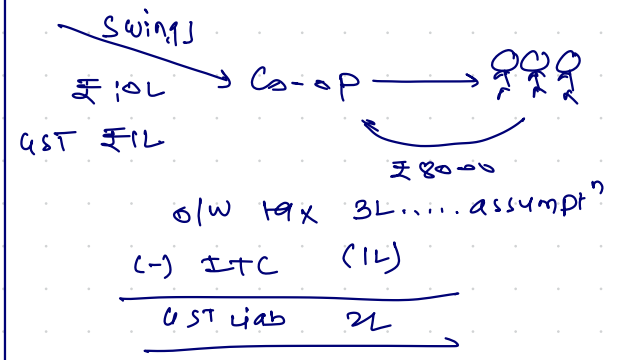 Swings
₹ 10L
Co-op
GST ₹1L
₹ 8000
o/w tax 3L..... assumptⁿ
(-) ITC (1L)
GST Liab 2L